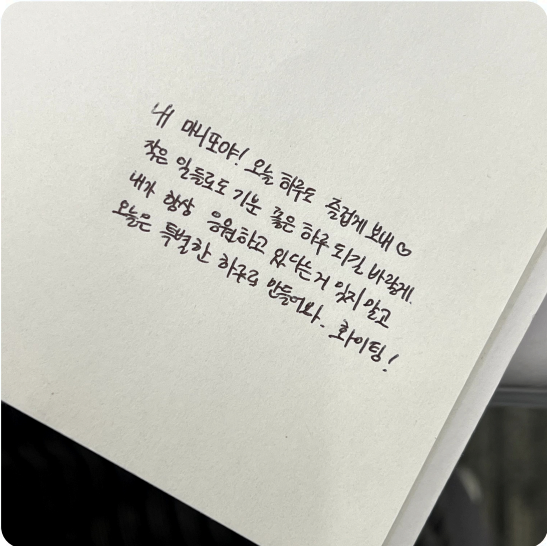 내 마니또야! 오늘 하루도 즐겁게 보내♡
작은 일들로도 기분 좋은 하루 되길 바랄게.
내가 항상 응원하고 있다는거 잊지말고
오늘은 특별한 하루로 만들어봐. 화이팅!